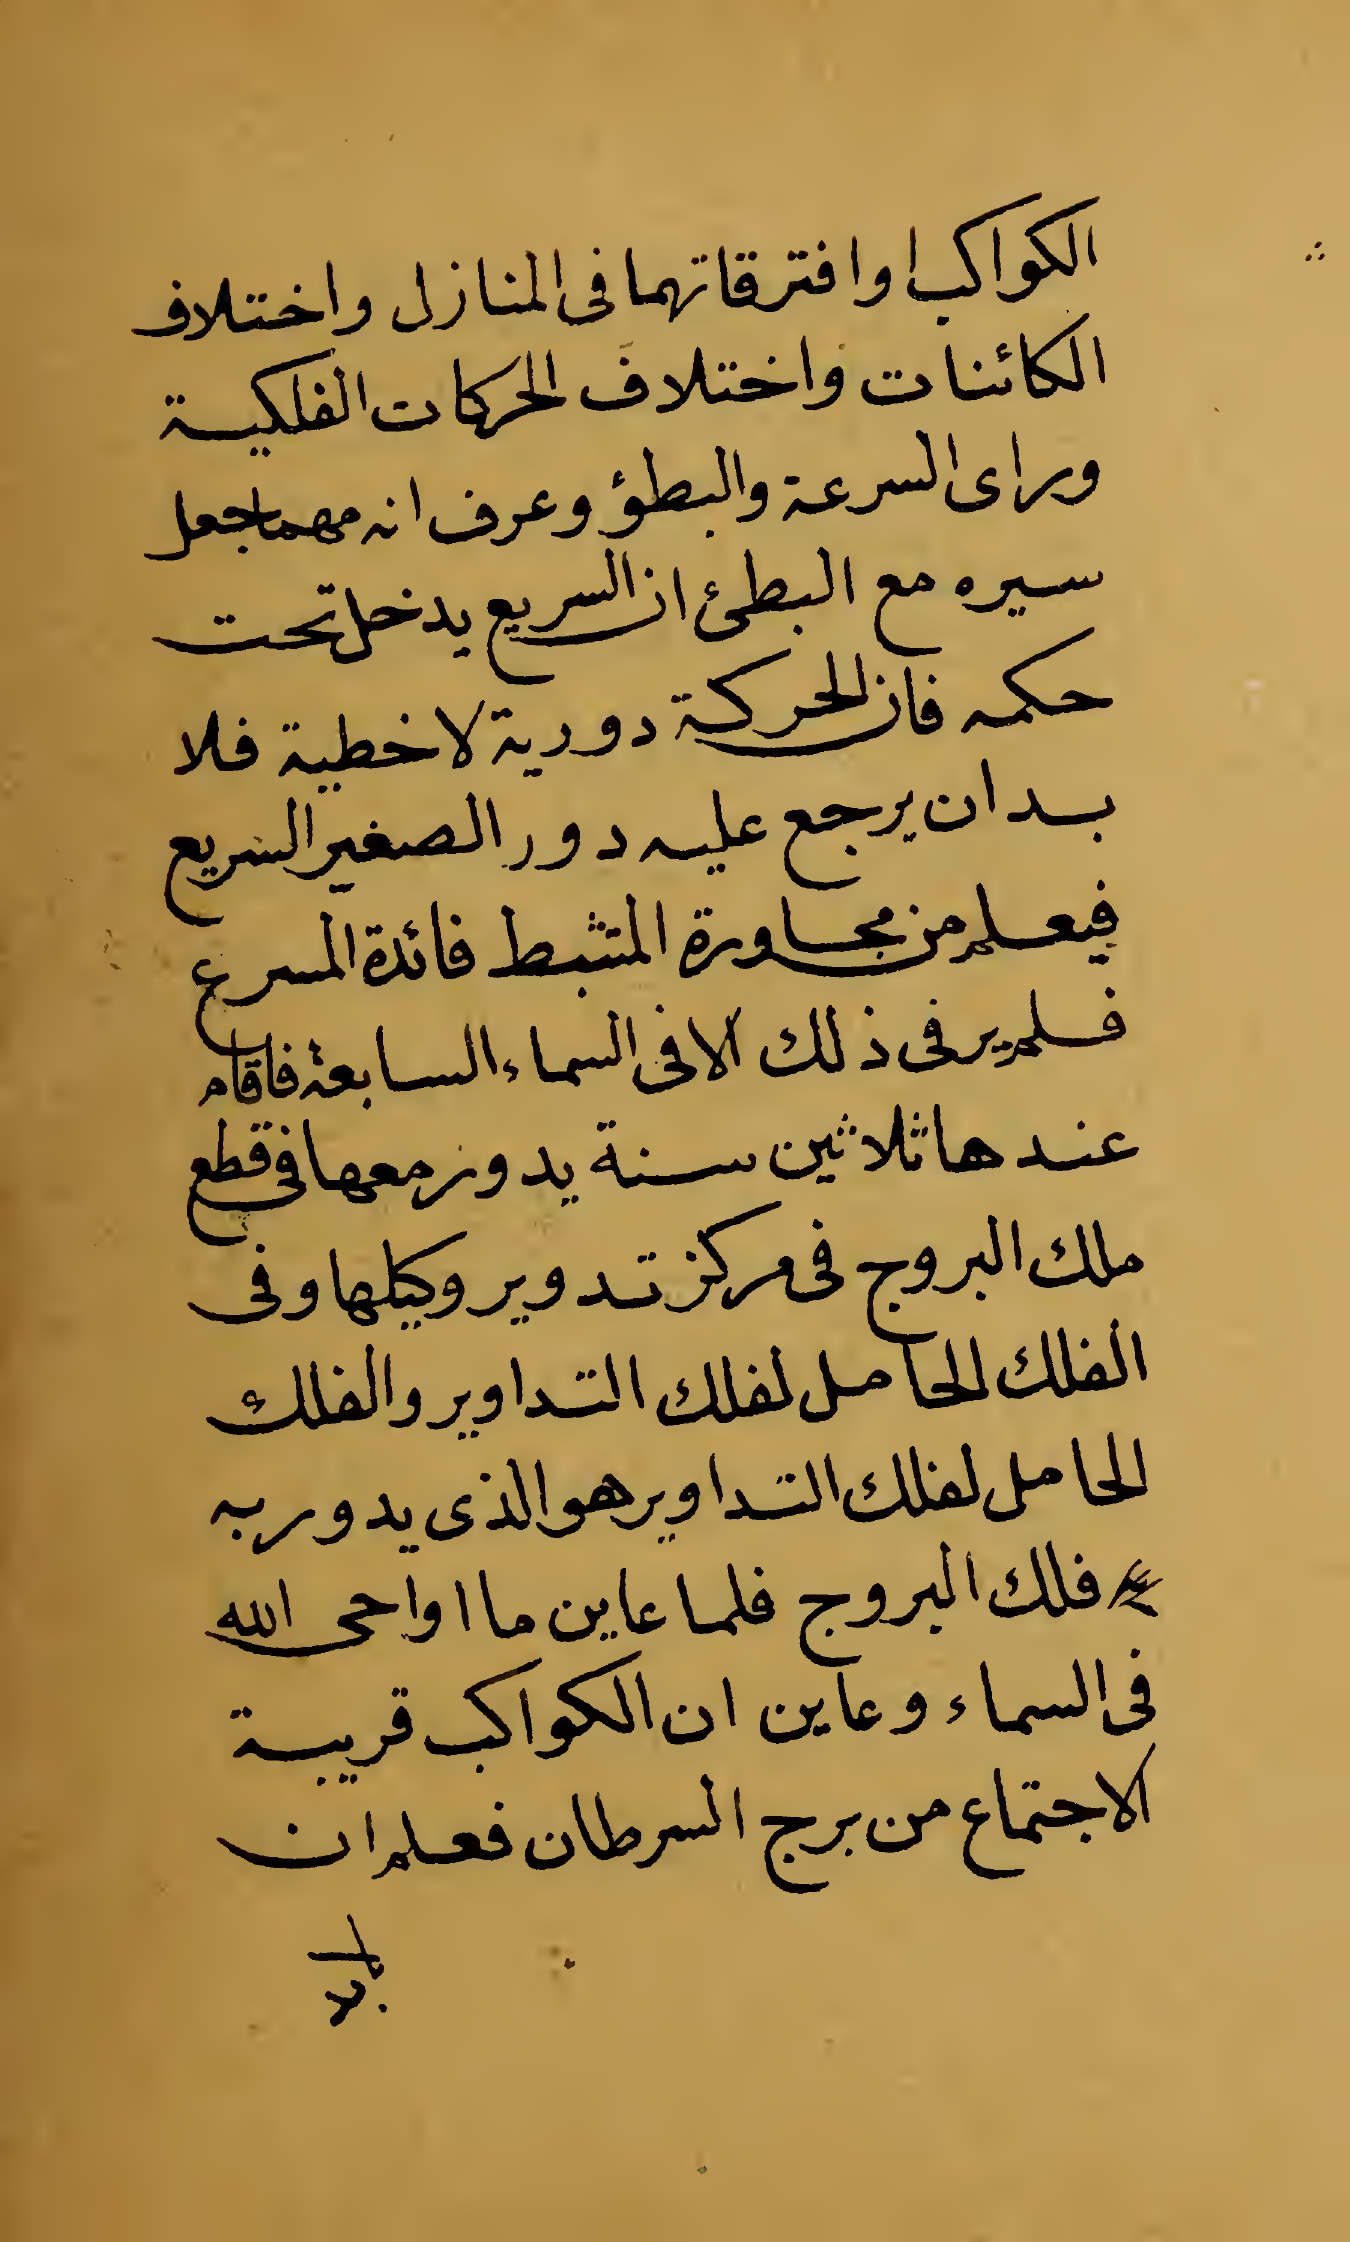 الكواكب وافترقاتهما فى المنازل واختلاف
الكائنات واختلاف الحركات الفلكية
وراى السرعة والبطؤ وعرف انه مهما جعل
سيره مع البطئ ان السريع يدخل تحت
حكمه فان الحركة دورية لا خطية فلا
بد ان يرجع عليه دور الصغير السريع
فيعلم من مجاورة المتثبط فائدة المسرع
فلم ير فى ذلك الا فى السماء السابعة فاقام
عندها ثلاثين سنة يدور معها فى قطع
ملك البروج فى مركز تدوير وكيلها وفى
الفلك الحامل لفلك التداوير والفلك
الحامل لفلك التداوير هو الذى يدور به
فلك البروج فلما عاين ما اواحى الله
فى السماء وعاين ان الكواكب قريبة
الاجتماع من برج السرطان فعلم ان